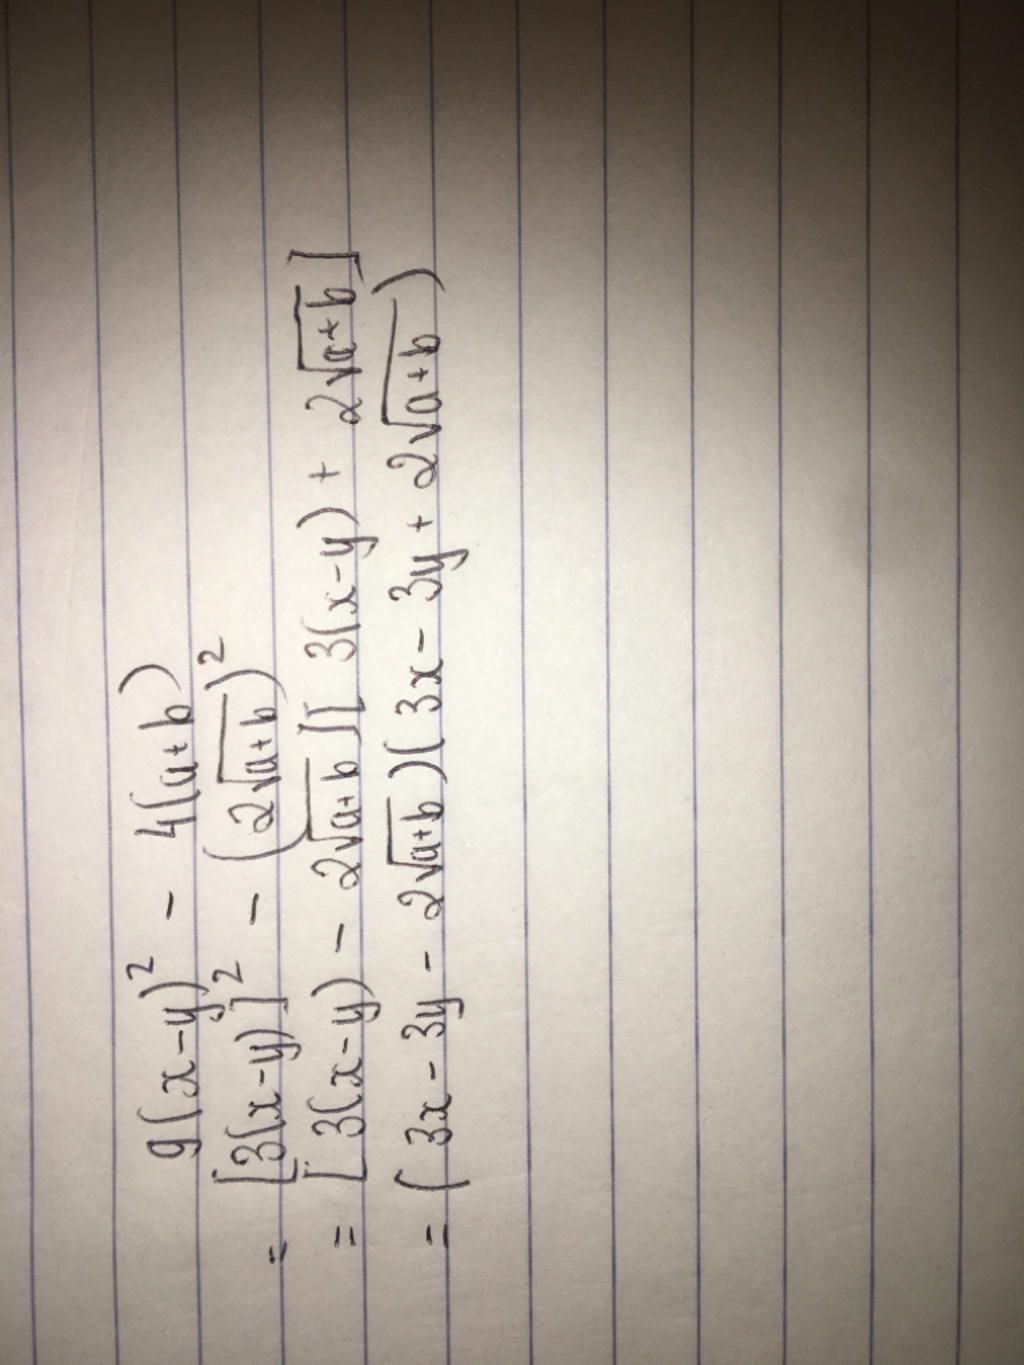 9(x-y)² - 4(a+b)
= [3(x-y)]² - (2√(a+b))²
= [3(x-y) - 2√(a+b)][3(x-y) + 2√(a+b)]
= (3x - 3y - 2√(a+b))(3x - 3y + 2√(a+b))